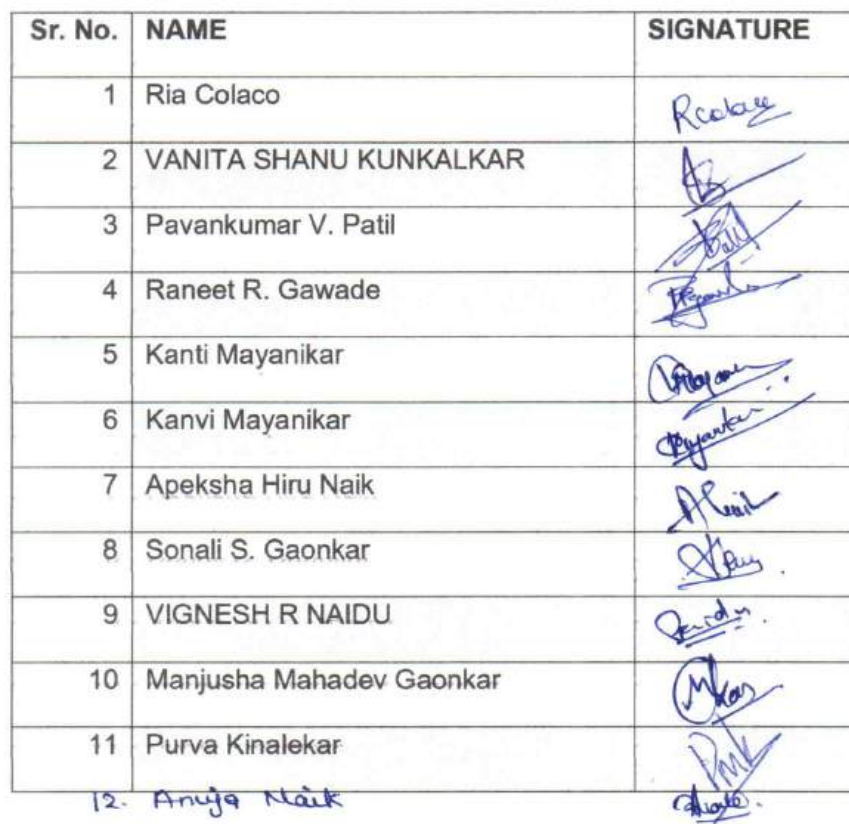 Sr. No. NAME SIGNATURE
1 Ria Colaco Rcolaco
2 VANITA SHANU KUNKALKAR
3 Pavankumar V. Patil
4 Raneet R. Gawade
5 Kanti Mayanikar
6 Kanvi Mayanikar
7 Apeksha Hiru Naik
8 Sonali S. Gaonkar
9 VIGNESH R NAIDU
10 Manjusha Mahadev Gaonkar
11 Purva Kinalekar
12. Anuja Naik